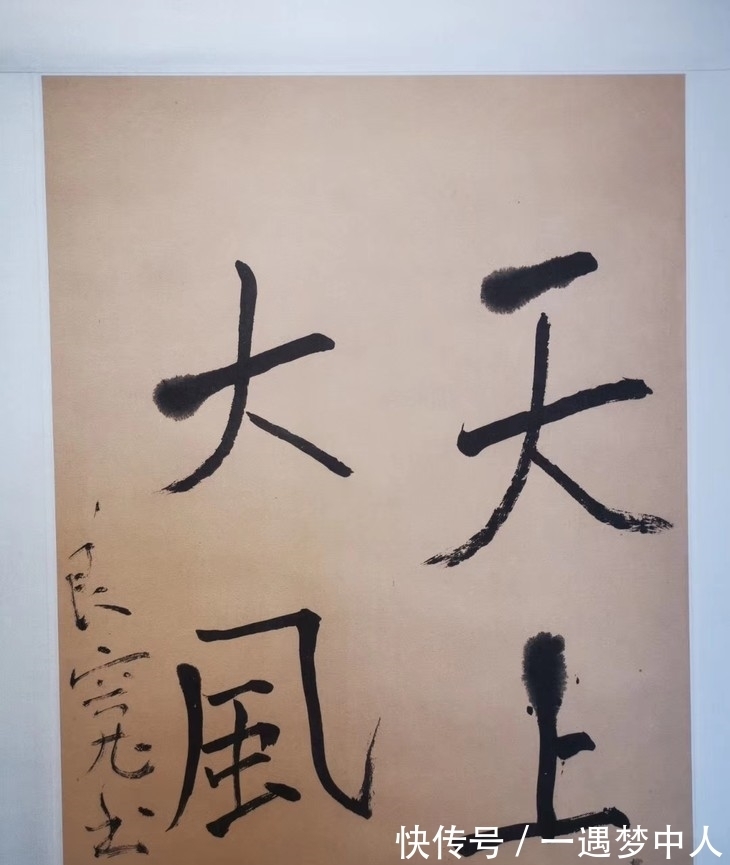 天上
大風
良寬書
快传号 / 一遇梦中人